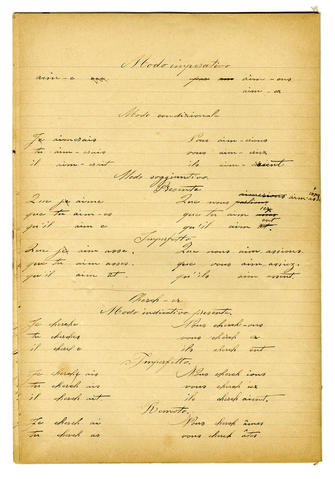 Modo imperativo
aim-e aim-ons
aim-ez
Modo condizionale
Je aimerais Nous aim-erions
tu aim-erais vous aim-eriez
il aim-erait ils aim-eraient
Modo soggiuntivo
Presente
Que je aime Que nous
que tu aim-es que vous aim iez
qu'il aim e qu'il aim ent
Imperfetto
Que je aim asse. Que nous aim assions.
que tu aim asses. que vous aim assiez.
qu'il aim ât qu'ils aim assent.
Cherch-er
Modo indicativo presente.
Je cherche Nous cherch-ons
tu cherches vous cherch ez
il cherche ils cherch ent
Imperfetto.
Je cherch ais Nous cherch ions
tu cherch ais vous cherch iez
il cherch ait ils cherch aient.
Remoto.
Je cherch ai Nous cherch âmes
tu cherch as vous cherch âtes